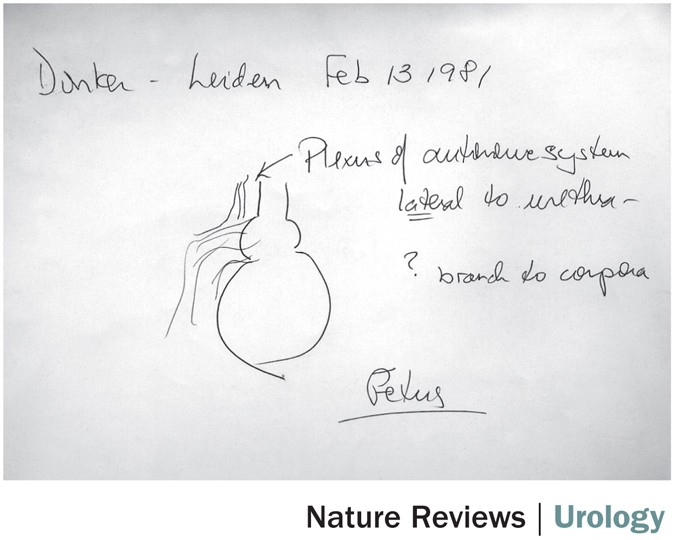 Donker - Leiden Feb 13 1981
Plexus of autonomic system
lateral to urethra -
? branch to corpora
Fetus
Nature Reviews | Urology